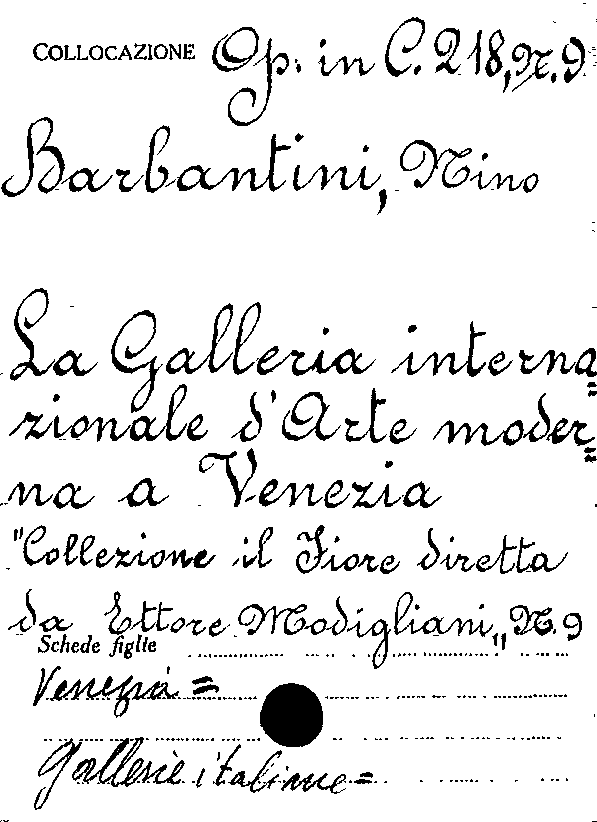 COLLOCAZIONE Op. in C. 218, N. 9
Barbantini, Nino
La Galleria interna=
zionale d'Arte moder=
na a Venezia
"Collezione il Fiore diretta
da Ettore Modigliani,, N. 9
Schede figlie
Venezia =
Gallerie italiane =